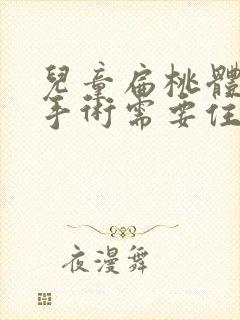 兒童扁桃體
手術需要住
夜漫舞